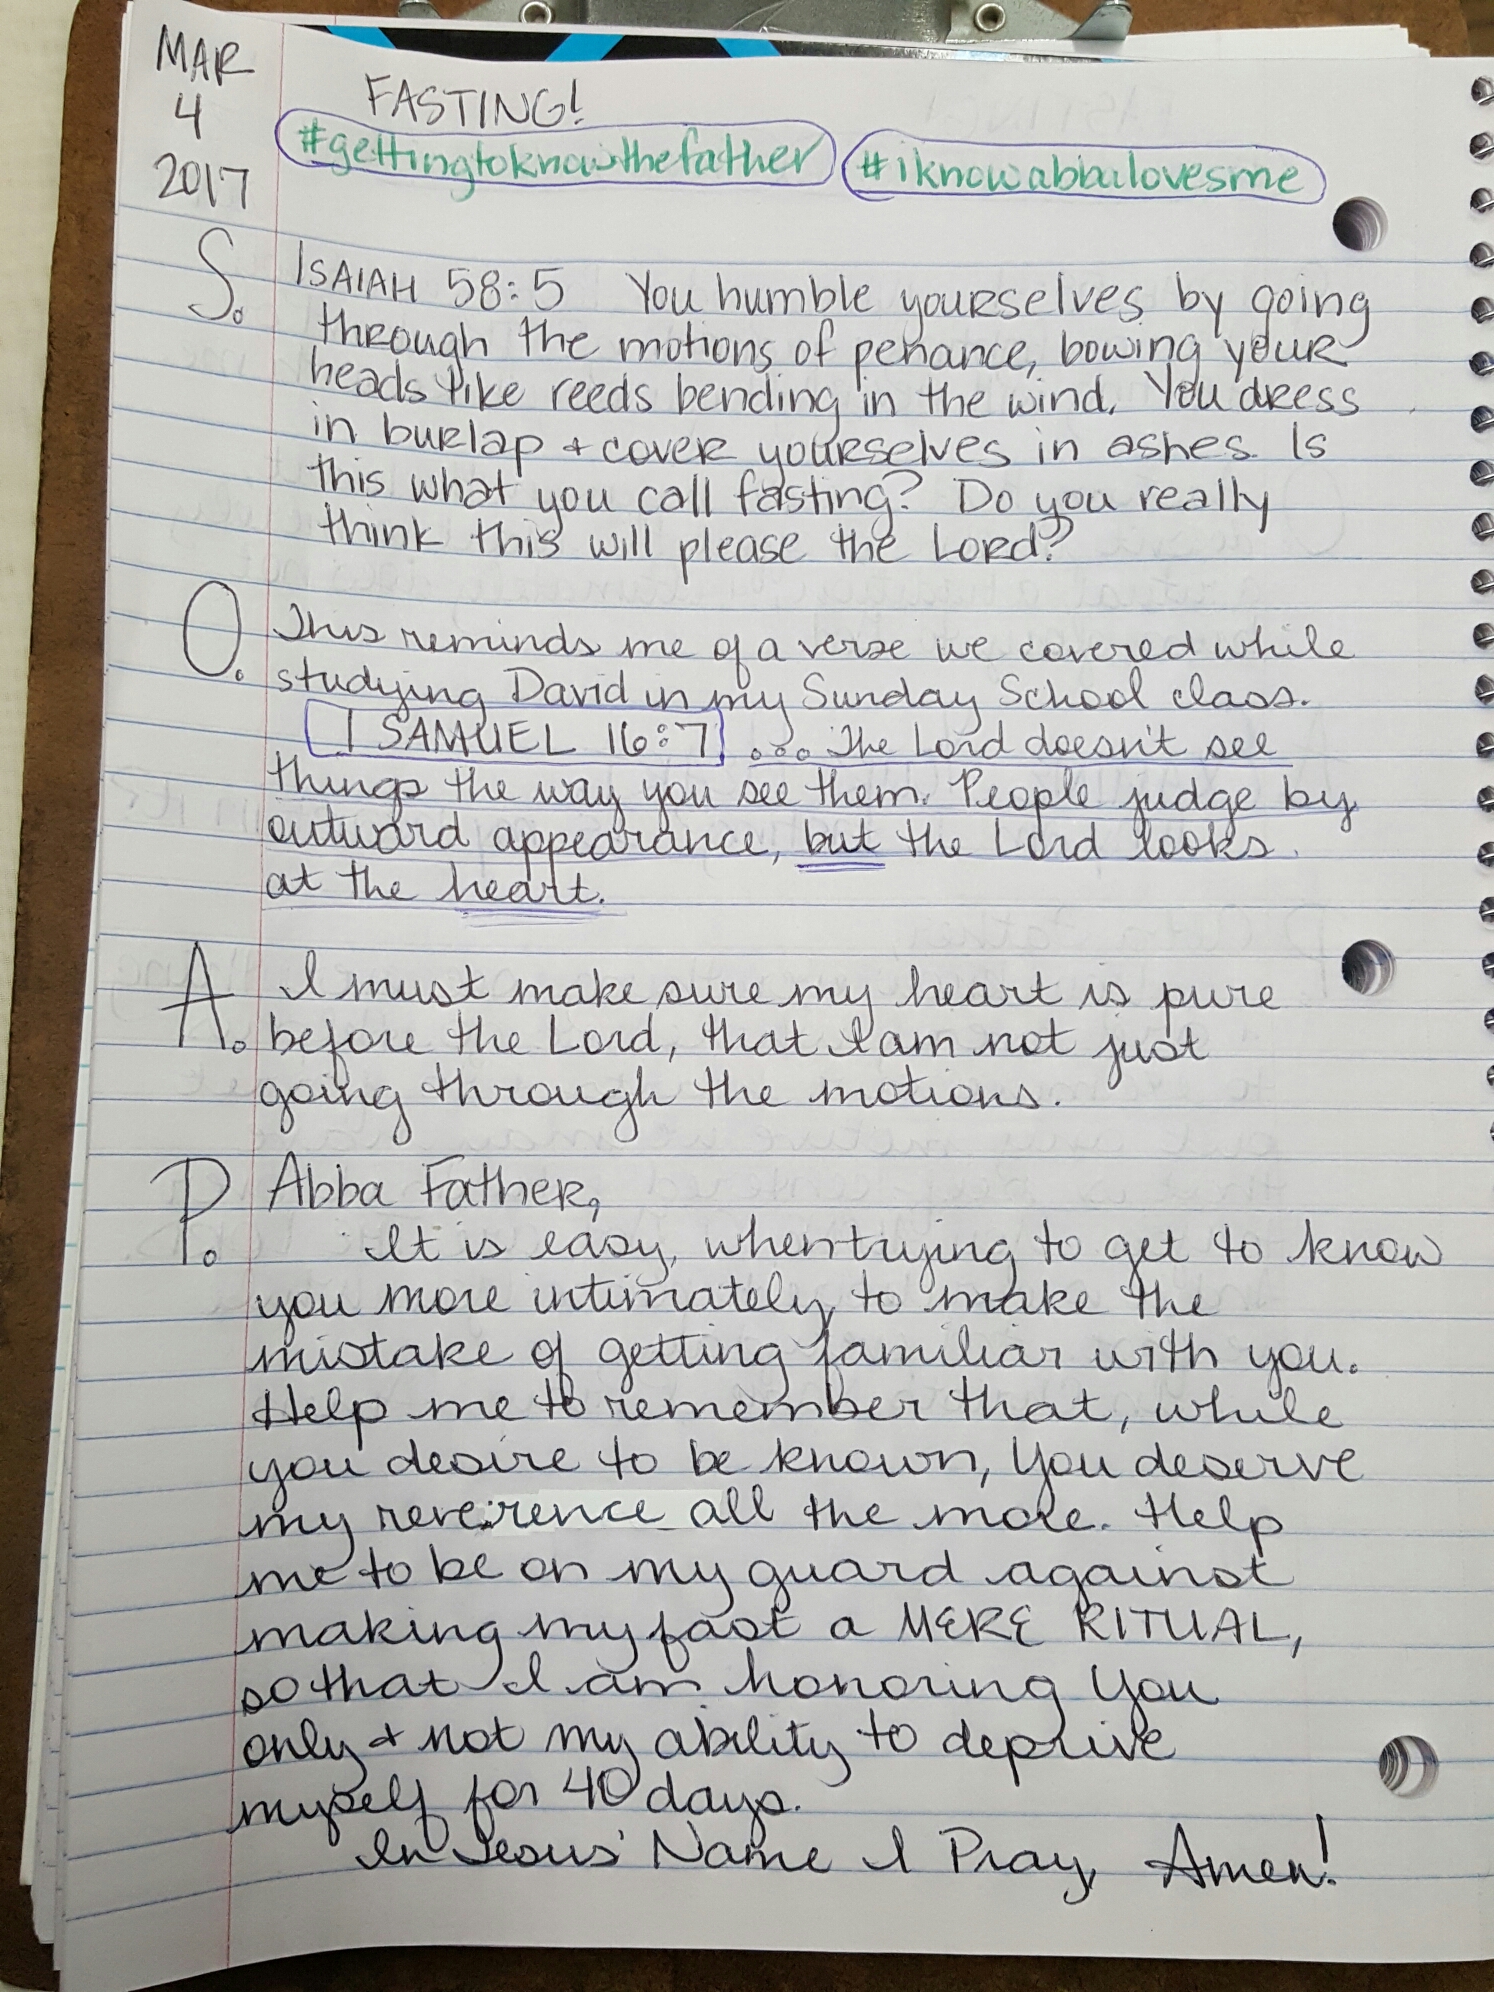 MAR
4
2017
FASTING!
#gettingtoknowthefather #iknowabbalovesme
S. ISAIAH 58:5 You humble yourselves by going
through the motions of penance, bowing your
heads like reeds bending in the wind. You dress
in burlap + cover yourselves in ashes. Is
this what you call fasting? Do you really
think this will please the Lord?
O. This reminds me of a verse we covered while
studying David in my Sunday School class.
1 SAMUEL 16:7 ... The Lord doesn't see
things the way you see them. People judge by
outward appearance, but the Lord looks
at the heart.
A. I must make sure my heart is pure
before the Lord, that I am not just
going through the motions.
P. Abba Father,
It is easy, when trying to get to know
you more intimately, to make the
mistake of getting familiar with you.
Help me to remember that, while
you desire to be known, You deserve
my reverence all the more. Help
me to be on my guard against
making my fast a MERE RITUAL,
so that I am honoring You
only + not my ability to deprive
myself for 40 days.
In Jesus' Name I Pray, Amen!